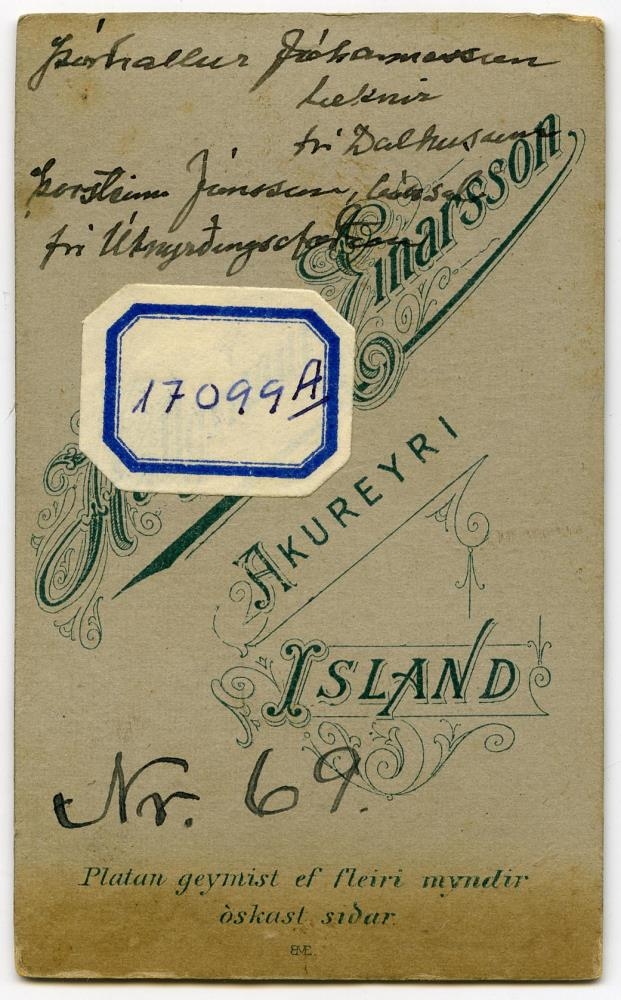 Þórhallur Jóhannesson
læknir
frá Dalhusum
Þorsteinn Jónsson,
frá Útnyrðingsstöðum
Einarsson
17099A
AKUREYRI
ISLAND
Nr. 69.
Platan geymist ef fleiri myndir
òskast siðar.